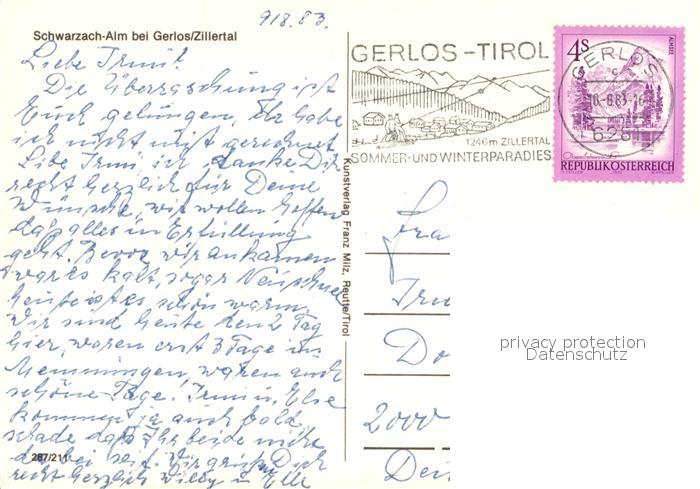 9/8.83.
Schwarzach-Alm bei Gerlos/Zillertal
Liebe Irmi!
Die Überraschung ist
Euch gelungen, Ihr habe
ich nicht mit gerechnet
Liebe Irmi ich danke Dir
recht herzlich für Deine
Wünsche, wir wollen hoffen
das alles in Erfüllung
geht. Bevor wir ankamen
war es kalt, sogar Neuschnee
heute ist es schön warm,
Wir sind heute den 2 Tag
hier, waren erst 3 Tage in
Memmingen, waren auch
schöne Tage. Irmi u. Else
kommen ja auch bald,
schade das Ihr beide nicht
dabei seit. Wir grüßen Dich
recht herzlich Willy u. Elle
287/211
Kunstverlag Franz Milz, Reutte/Tirol
GERLOS-TIROL
1246m ZILLERTAL
SOMMER-UND WINTERPARADIES
GERLOS
10.-8.83-16
628
4S
ALMSEE
REPUBLIK ÖSTERREICH
Fra
Irm
Do
2000
Dei
privacy protection
Datenschutz